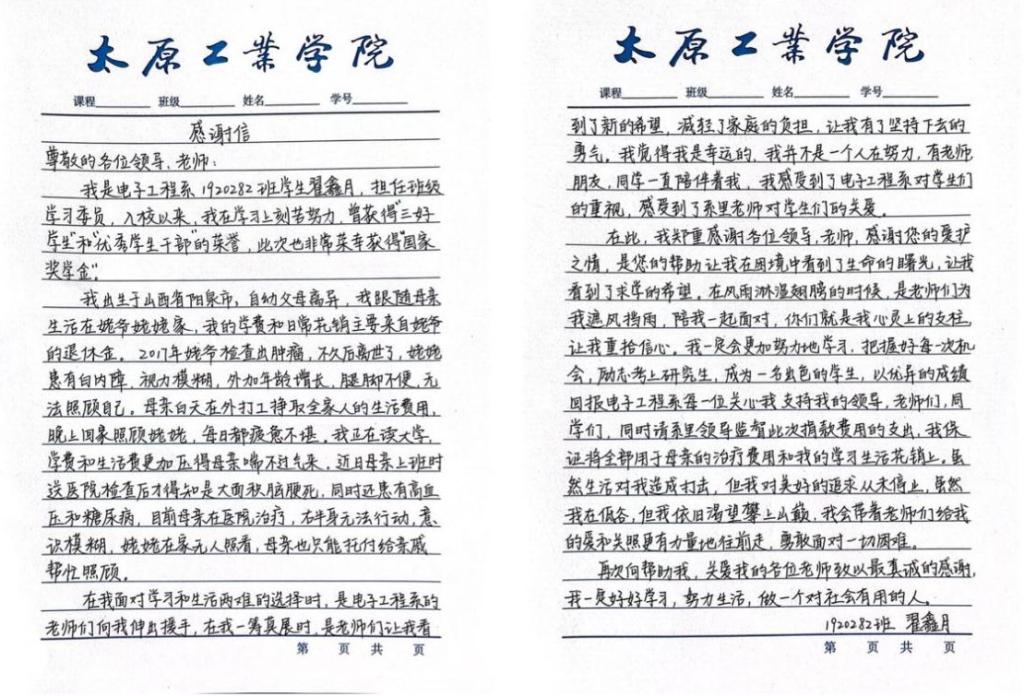 太原工业学院
课程 班级 姓名 学号
感谢信
尊敬的各位领导、老师:
我是电子工程系1920282班学生翟鑫月,担任班级
学习委员,入校以来,我在学习上刻苦努力,曾获得“三好
学生”和“优秀学生干部”的荣誉,此次也非常荣幸获得“国家
奖学金”。
我出生于山西省阳泉市,自幼父母离异,我跟随母亲
生活在姥爷姥姥家,我的学费和日常花销主要来自姥爷
的退休金。2017年姥爷检查出肿瘤,不久后离世了,姥姥
患有白内障,视力模糊,外加年龄增长,腿脚不便,无
法照顾自己。母亲白天在外打工挣取全家人的生活费用,
晚上回家照顾姥姥,每日都疲惫不堪,我正在读大学,
学费和生活费更加压得母亲喘不过气来,近日母亲上班时
送医院检查后才得知是大面积脑梗死,同时还患有高血
压和糖尿病,目前母亲在医院治疗,右半身无法行动,意
识模糊,姥姥在家无人照看,母亲也只能托付给亲戚
帮忙照顾。
在我面对学习和生活两难的选择时,是电子工程系的
老师们向我伸出援手,在我一筹莫展时,是老师们让我看
第 页 共 页
太原工业学院
课程 班级 姓名 学号
到了新的希望,减轻了家庭的负担,让我有了坚持下去的
勇气。我觉得我是幸运的,我并不是一个人在努力,有老师
朋友,同学一直陪伴着我,我感受到了电子工程系对学生们
的重视,感受到了系里老师对学生们的关爱。
在此,我郑重感谢各位领导,老师,感谢您的爱护
之情,是您的帮助让我在困境中看到了生命的曙光,让我
看到了求学的希望。在风雨淋湿翅膀的时候,是老师们为
我遮风挡雨,陪我一起面对,你们就是我心灵上的支柱,
让我重拾信心。我一定会更加努力地学习,把握好每一次机
会,励志考上研究生,成为一名出色的学生,以优异的成绩
回报电子工程系每一位关心我支持我的领导,老师们,同
学们,同时请系里领导监督此次捐款费用的支出,我保
证将全部用于母亲的治疗费用和我的学习生活花销上,虽
然生活对我造成打击,但我对美好的追求从未停止,虽然
我在低谷,但我依旧渴望攀上山巅,我会带着老师们给我
的爱和关照更有力量地往前走,勇敢面对一切困难。
再次向帮助我,关爱我的各位老师致以最真诚的感谢,
我一定好好学习,努力生活,做一个对社会有用的人。
1920282班 翟鑫月
第 页 共 页